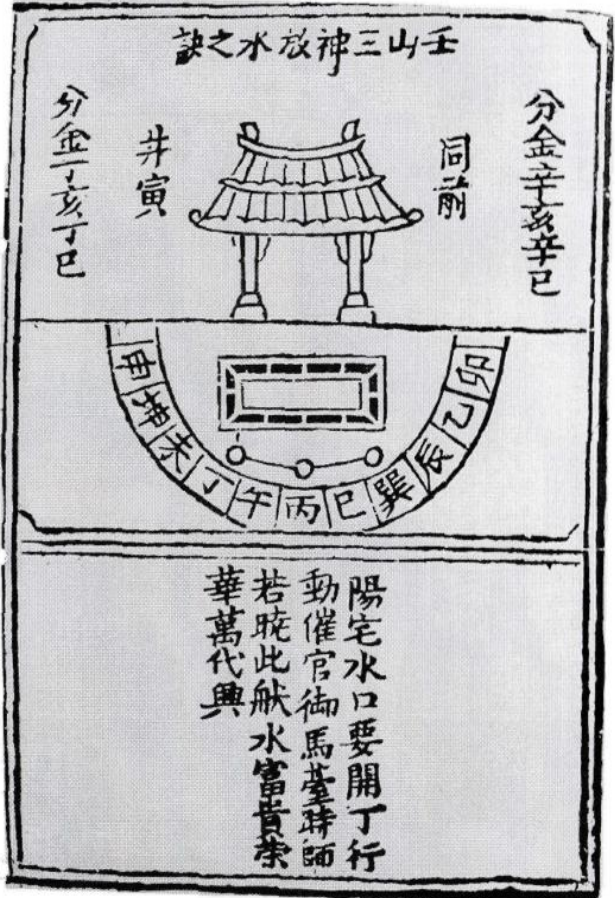 壬山三神放水之訣
分金辛亥辛巳
同前
井寅
分金丁亥丁巳
卯乙辰巽巳丙午丁未坤申
陽宅水口要開丁行
動催官御馬臺時師
若暁此般水富貴榮
華萬代興